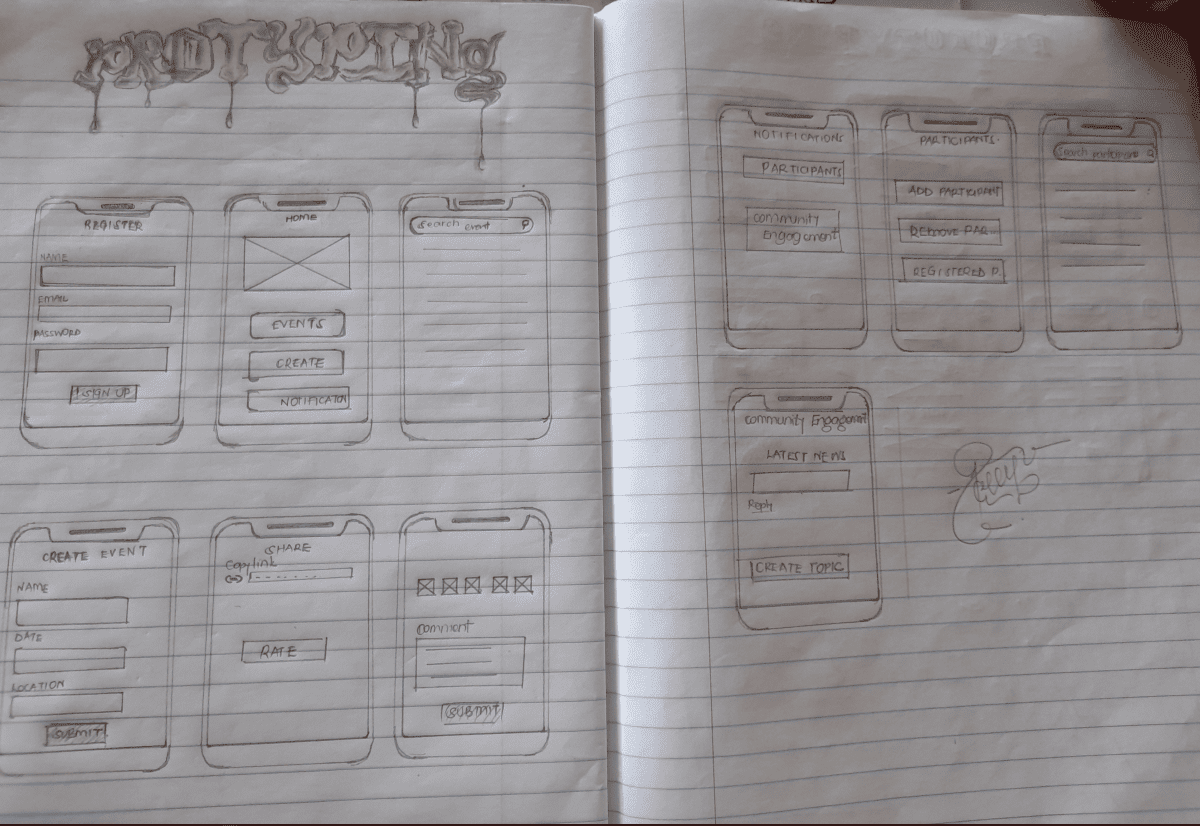 PROTYPING
REGISTER
NAME
EMAIL
PASSWORD
SIGN UP
HOME
EVENTS
CREATE
NOTIFICATION
Search event
CREATE EVENT
NAME
DATE
LOCATION
SUBMIT
SHARE
Copy link
RATE
Comment
SUBMIT
NOTIFICATIONS
PARTICIPANTS
Community
Engagement
PARTICIPANTS.
ADD PARTICIPANT
REMOVE PAR...
REGISTERED P.
Search
Community Engagement
LATEST NEWS
Reply
CREATE TOPIC